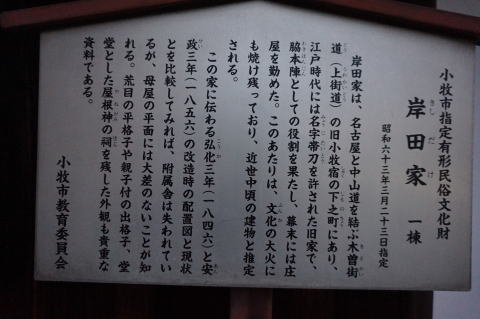 小牧市指定有形民俗文化財
岸田家 一棟
きしだけ
昭和六十三年三月二十三日指定
岸田家は、名古屋と中山道を結ぶ木曽街
道（上街道）の旧小牧宿の下之町にあり、
江戸時代には名字帯刀を許された旧家で、
脇本陣としての役割を果たし、幕末には庄
屋を勤めた。このあたりは、文化の大火に
も焼け残っており、近世中頃の建物と推定
される。
この家に伝わる弘化三年（一八四六）と安
政三年（一八五六）の改造時の配置図と現状
とを比較してみれば、附属舎は失われてい
るが、母屋の平面には大差のないことが知
れる。荒目の平格子や親子付の出格子、堂
堂とした屋根神の祠を残した外観も貴重な
資料である。
小牧市教育委員会